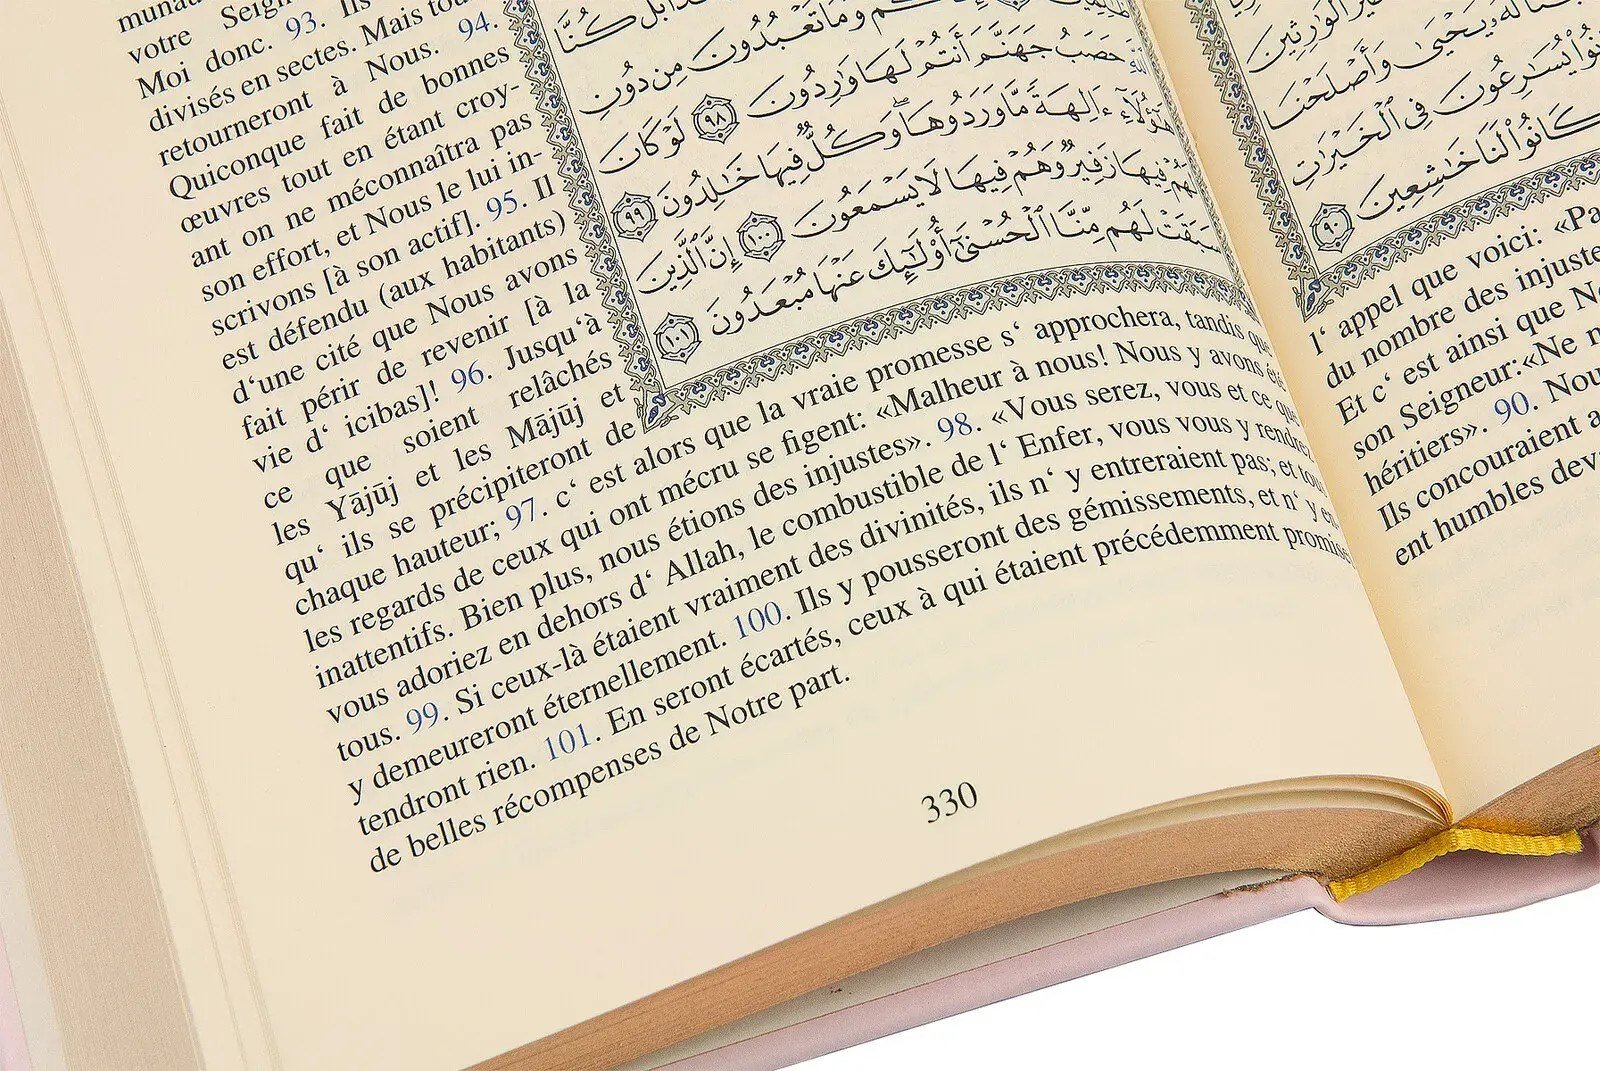 votre
Moi donc. 93. Ils
divisés en sectes. Mais
retourneront à Nous. 94.
Quiconque fait de bonnes
œuvres tout en étant croy-
ant on ne méconnaîtra pas
son effort, et Nous le lui in-
scrivons [à son actif]. 95. Il
est défendu (aux habitants)
d‘une cité que Nous avons
fait périr de revenir [à la
vie d‘ icibas]! 96. Jusqu‘à
ce que soient relâchés
les Yājūj et les Mājūj et
qu‘ ils se précipiteront de
chaque hauteur; 97. c‘ est alors que la vraie promesse s‘ approchera, tandis que
les regards de ceux qui ont mécru se figent: «Malheur à nous! Nous y avons été
inattentifs. Bien plus, nous étions des injustes». 98. «Vous serez, vous et ce que
vous adoriez en dehors d‘ Allah, le combustible de l‘ Enfer, vous vous y rendrez
tous. 99. Si ceux-là étaient vraiment des divinités, ils n‘ y entreraient pas; et tous
y demeureront éternellement. 100. Ils y pousseront des gémissements, et n‘ y en-
tendront rien. 101. En seront écartés, ceux à qui étaient précédemment promises
de belles récompenses de Notre part.
وَمَا تَعْبُدُونَ مِن دُونِ
ٱللَّهِ حَصَبُ جَهَنَّمَ أَنتُمْ لَهَا وَٰرِدُونَ ٩٨ لَوْ كَانَ
هَٰٓؤُلَآءِ ءَالِهَةً مَّا وَرَدُوهَا وَكُلٌّ فِيهَا خَٰلِدُونَ ٩٩
لَهُمْ فِيهَا زَفِيرٌ وَهُمْ فِيهَا لَا يَسْمَعُونَ ١٠٠ إِنَّ ٱلَّذِينَ
سَبَقَتْ لَهُم مِّنَّا ٱلْحُسْنَىٰٓ أُو۟لَٰٓئِكَ عَنْهَا مُبْعَدُونَ ١٠١
330
خَيْرُ ٱلْوَٰرِثِينَ
لَهُۥ يَحْيَىٰ وَأَصْلَحْنَا
يُسَٰرِعُونَ فِى ٱلْخَيْرَٰتِ
كَانُوا۟ لَنَا خَٰشِعِينَ ٩٠
l‘ appel que voici: «Pa
du nombre des injuste
Et c‘ est ainsi que No
son Seigneur:«Ne
héritiers». 90. Nou
Ils concouraient a
ent humbles dev